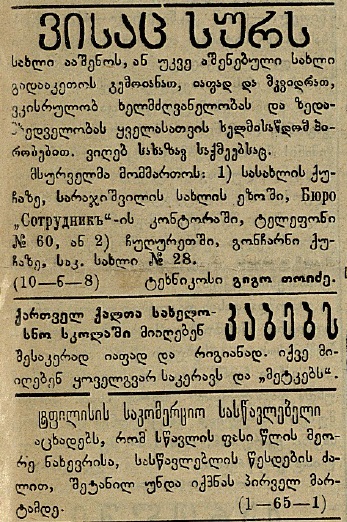 ვისაც სურს
სახლი ააშენოს, ან უკვე აშენებული სახლი
გადააკეთოს გემოთანათ, იაფად და მკვიდრათ,
ვკისრულობ ხელმძღვანელობას და ზედა-
მხედველობას ყველასათვის ხელმისაწდომ პი-
რობებით. ვიღებ სახაზავ საქმეებსაც.
მსურველმა მომმართოს: 1) სასახლის ქუ-
ჩაზე, სარაჯიშვილის სახლის ეზოში, Бюро
„Сотрудникъ“-ის კონტორაში, ტელეფონი
№ 60, ან 2) ჩუღურეთში, გონჩარნი ქუ-
ჩაზე, საკ. სახლი № 28.
(10—ნ—8) ტეხნიკოსი გიგო თოიძე.
ქართველ ქალთა სახელო-
სნო სკოლაში მიიღებენ კაბებს
შესაკერად იაფად და რიგიანად. იქვე მი-
იღებენ ყოველგვარ საკერავს და „მეტკებს“.
ტფილისის საკომერციო სასწავლებელი
აცხადებს, რომ სწავლის ფასი წლის მეო-
რე ნახევრისა, სასწავლებლის წესდების ძა-
ლით, შეტანილ უნდა იქმნას პირველ მარ-
ტამდე. (1—65—1)